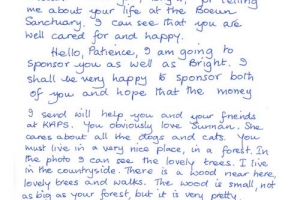 telling
me about your life at the Boeun
Sanctuary. I can see that you are
well cared for and happy.
Hello, Patience, I am going to
sponsor you as well as Bright. I
shall be very happy to sponsor both
of you and hope that the money
I send will help you and your friends
at KAPS. You obviously love Sunnan. She
cares about all the dogs and cats. You
must live in a very nice place, in a forest. In
the photo I can see the lovely trees. I live
in the countryside. There is a wood near here,
lovely trees and walks. The wood is small, not
as big as your forest, but it is very pretty.